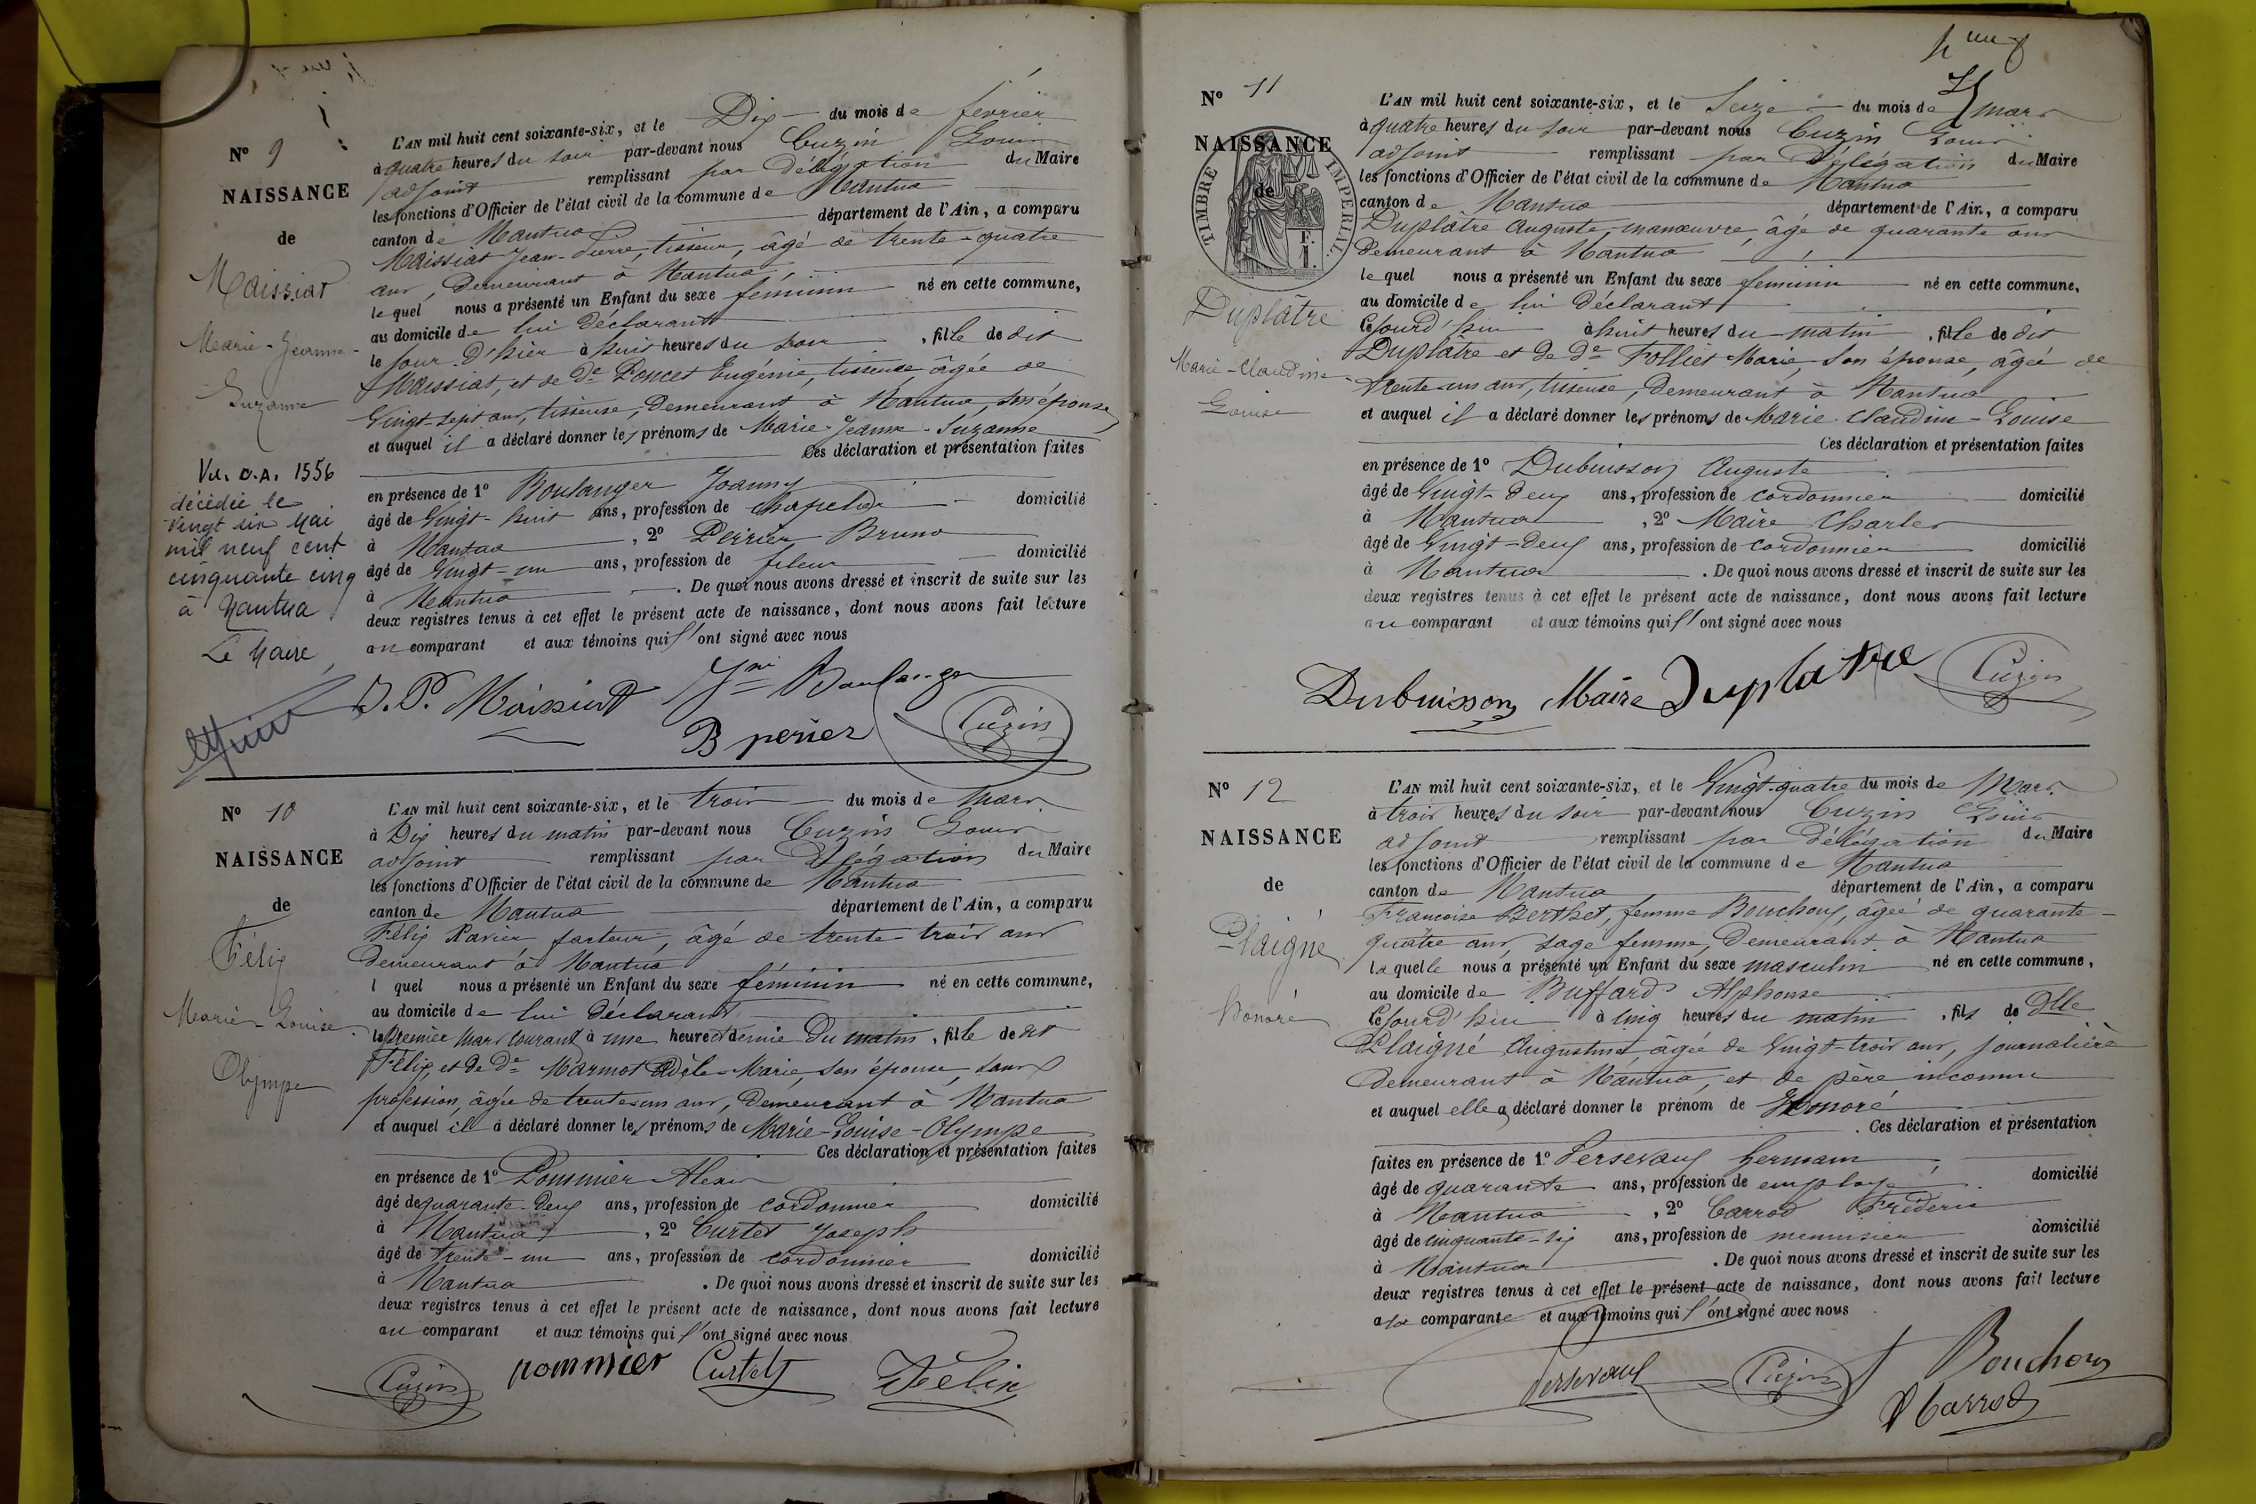 Nº 9
NAISSANCE
de
Maissiat
Marie-Jeanne-
Suzanne
Vu. O.A. 1556
décédée le
vingt six Mai
mil neuf cent
cinquante cinq
à Nantua
Le Maire
L'AN mil huit cent soixante-six, et le Dix du mois de février
à quatre heures du soir par-devant nous Cuzin Louis
adjoint remplissant par délégation du Maire
les fonctions d'Officier de l'état civil de la commune de Nantua
canton de Nantua département de l'Ain, a comparu
Maissiat Jean-Pierre, tisseur, âgé de trente-quatre
ans, demeurant à Nantua,
le quel nous a présenté un Enfant du sexe féminin né en cette commune,
au domicile de lui déclarant
le jour d'hier à huit heures du soir, fille de dit
Maissiat, et de De Poncet Eugénie, tisseuse, âgée de
Vingt-sept ans, tisseuse, demeurant à Nantua, son épouse,
et auquel il a déclaré donner les prénoms de Marie-Jeanne-Suzanne
Ces déclaration et présentation faites
en présence de 1º Boulanger Joanny
âgé de Vingt-huit ans, profession de domicilié
à Nantua, 2º Perrier Bruno
âgé de Vingt-un ans, profession de fileur domicilié
à Nantua. De quoi nous avons dressé et inscrit de suite sur les
deux registres tenus à cet effet le présent acte de naissance, dont nous avons fait lecture
au comparant et aux témoins qui l'ont signé avec nous
J. P. Maissiat Jni Boulanger
B perier Cuzin
Nº 10
NAISSANCE
de
Félix
Marie-Louise-
Olympe
L'AN mil huit cent soixante-six, et le trois du mois de Mars
à Dix heures du matin par-devant nous Cuzin Louis
adjoint remplissant par Délégation du Maire
les fonctions d'Officier de l'état civil de la commune de Nantua
canton de Nantua département de l'Ain, a comparu
Félix Xavier, facteur, âgé de trente-trois ans
demeurant à Nantua
l quel nous a présenté un Enfant du sexe féminin né en cette commune,
au domicile de lui déclarant
le premier Mars courant à une heure et demie du matin, fille de dit
Félix, et de De Marmot Adèle-Marie, son épouse, sans
profession, âgée de trente-un ans, demeurant à Nantua
et auquel il a déclaré donner les prénoms de Marie-Louise-Olympe
Ces déclaration et présentation faites
en présence de 1º Pommier Alexis
âgé de quarante-deux ans, profession de cordonnier domicilié
à Nantua, 2º Curtet Joseph
âgé de trente-un ans, profession de cordonnier domicilié
à Nantua. De quoi nous avons dressé et inscrit de suite sur les
deux registres tenus à cet effet le présent acte de naissance, dont nous avons fait lecture
au comparant et aux témoins qui l'ont signé avec nous
Cuzin pommier Curtet Félix
Nº 11
NAISSANCE
de
TIMBRE IMPÉRIAL
F.
1.
Duplâtre
Marie-Claudine-
Louise
L'AN mil huit cent soixante-six, et le Seize du mois de mars
à quatre heures du soir par-devant nous Cuzin Louis
adjoint remplissant par Délégation du Maire
les fonctions d'Officier de l'état civil de la commune de Nantua
canton de Nantua département de l'Ain, a comparu
Duplâtre Auguste, manœuvre, âgé de quarante ans
demeurant à Nantua,
le quel nous a présenté un Enfant du sexe féminin né en cette commune,
au domicile de lui déclarant
Cejourd'hui à huit heures du matin, fille de dit
Duplâtre et de De Folliet Marie, son épouse, âgée de
trente-un ans, tisseuse, demeurant à Nantua
et auquel il a déclaré donner les prénoms de Marie-Claudine-Louise
Ces déclaration et présentation faites
en présence de 1º Dubuisson Auguste
âgé de Vingt-deux ans, profession de cordonnier domicilié
à Nantua, 2º Maire Charles
âgé de Vingt-deux ans, profession de cordonnier domicilié
à Nantua. De quoi nous avons dressé et inscrit de suite sur les
deux registres tenus à cet effet le présent acte de naissance, dont nous avons fait lecture
au comparant et aux témoins qui l'ont signé avec nous
Dubuisson Maire Duplatre Cuzin
Nº 12
NAISSANCE
de
Plaigné
honoré
L'AN mil huit cent soixante-six, et le Vingt-quatre du mois de Mars
à trois heures du soir par-devant nous Cuzin Louis
adjoint remplissant par délégation du Maire
les fonctions d'Officier de l'état civil de la commune de Nantua
canton de Nantua département de l'Ain, a comparu
Françoise Berthet, femme Bouchoux, âgée de quarante-
quatre ans, sage femme, demeurant à Nantua
la quelle nous a présenté un Enfant du sexe masculin né en cette commune,
au domicile de Buffard Alphonse
Cejourd'hui à cinq heures du matin, fils de Dlle
Plaigné Augustine âgée de Vingt-trois ans, journalière
demeurant à Nantua, et de père inconnu
et auquel elle a déclaré donner le prénom de Honoré
. Ces déclaration et présentation
faites en présence de 1º Persevaux Germain,
âgé de quarante ans, profession de employé domicilié
à Nantua, 2º Carrod Frédéric
âgé de cinquante-six ans, profession de menuisier domicilié
à Nantua. De quoi nous avons dressé et inscrit de suite sur les
deux registres tenus à cet effet le présent acte de naissance, dont nous avons fait lecture
à la comparante et aux témoins qui l'ont signé avec nous
Persevaux Cuzin f Bouchoux
Carrod